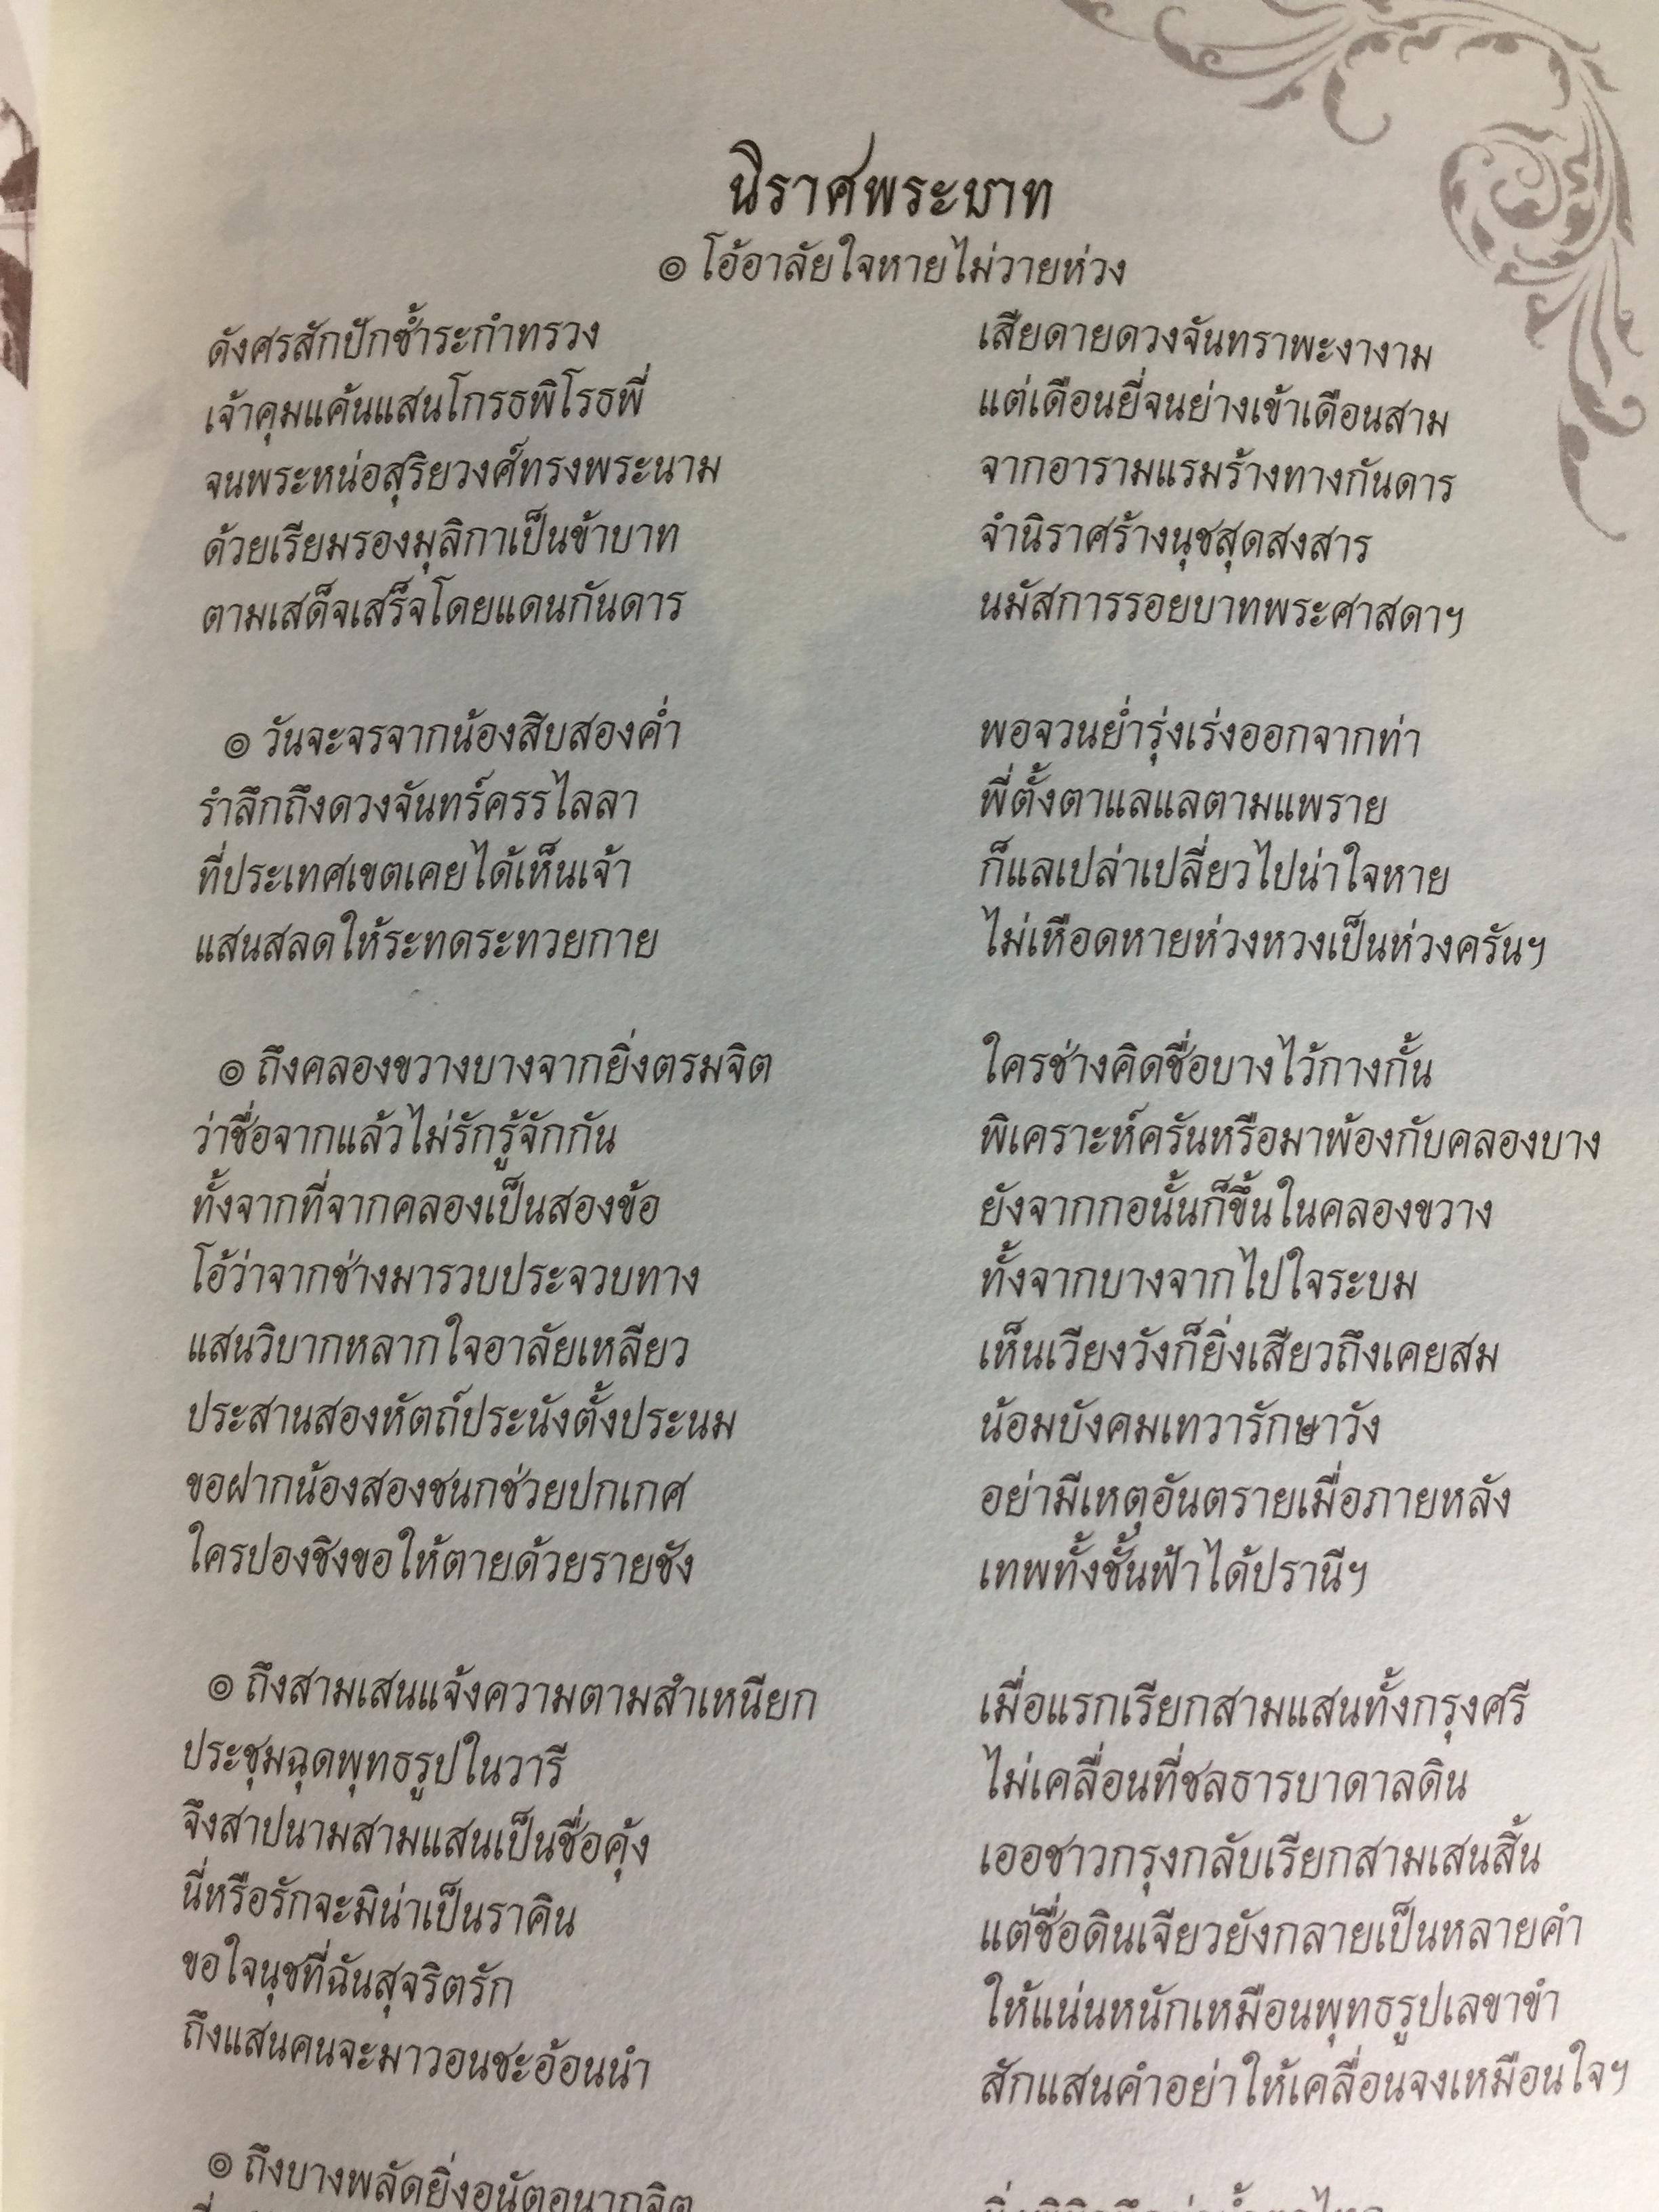 นิราศพระบาท
๏ โอ้อาลัยใจหายไม่วายห่วง
ดังศรสักปักซ้ำระกำทรวง เสียดายดวงจันทราพะงางาม
เจ้าคุมแค้นแสนโกรธพิโรธพี่ แต่เดือนยี่จนย่างเข้าเดือนสาม
จนพระหน่อสุริยวงศ์ทรงพระนาม จากอารามแรมร้างทางกันดาร
ด้วยเรียมรองมุลิกาเป็นข้าบาท จำนิราศร้างนุชสุดสงสาร
ตามเสด็จเสร็จโดยแดนกันดาร นมัสการรอยบาทพระศาสดาฯ
๏ วันจะจรจากน้องสิบสองค่ำ พอจวนย่ำรุ่งเร่งออกจากท่า
รำลึกถึงดวงจันทร์ครรไลลา พี่ตั้งตาแลแลตามแพราย
ที่ประเทศเขตเคยได้เห็นเจ้า ก็แลเปล่าเปลี่ยวไปน่าใจหาย
แสนสลดให้ระทดระทวยกาย ไม่เหือดหายห่วงหวงเป็นห่วงครันฯ
๏ ถึงคลองขวางบางจากยิ่งตรมจิต ใครช่างคิดชื่อบางไว้กางกั้น
ว่าชื่อจากแล้วไม่รักรู้จักกัน พิเคราะห์ครันหรือมาพ้องกับคลองบาง
ทั้งจากที่จากคลองเป็นสองข้อ ยังจากกอนั้นก็ขึ้นในคลองขวาง
โอ้ว่าจากช่างมารวบประจวบทาง ทั้งจากบางจากไปใจระบม
แสนวิบากหลากใจอาลัยเหลียว เห็นเวียงวังก็ยิ่งเสียวถึงเคยสม
ประสานสองหัตถ์ประนังตั้งประนม น้อมบังคมเทวารักษาวัง
ขอฝากน้องสองชนกช่วยปกเกศ อย่ามีเหตุอันตรายเมื่อภายหลัง
ใครปองชิงขอให้ตายด้วยรายชัง เทพทั้งชั้นฟ้าได้ปรานีฯ
๏ ถึงสามเสนแจ้งความตามสำเหนียก เมื่อแรกเรียกสามแสนทั้งกรุงศรี
ประชุมฉุดพุทธรูปในวารี ไม่เคลื่อนที่ชลธารบาดาลดิน
จึงสาปนามสามแสนเป็นชื่อคุ้ง เออชาวกรุงกลับเรียกสามเสนสิ้น
นี่หรือรักจะมิน่าเป็นราคิน แต่ชื่อดินเจียวยังกลายเป็นหลายคำ
ขอใจนุชที่ฉันสุจริตรัก ให้แน่นหนักเหมือนพุทธรูปเลขาขำ
ถึงแสนคนจะมาวอนชะอ้อนนำ สักแสนคำอย่าให้เคลื่อนจงเหมือนใจฯ
๏ ถึงบางพลัดยิ่งอนัตอนาถจิต